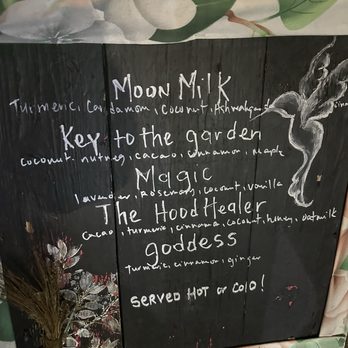 Moon Milk
Turmeric, Cardamom, Coconut, Ashwaganda
Key to the garden
coconut, nutmeg, cacao, cinnamon, maple
Magic
lavender, Rosemary, coconut, vanilla
The Hood Healer
cacao, turmeric, cinnamon, coconut, honey, oatmilk
goddess
turmeric, cinnamon, ginger
SERVED HOT or COLD!